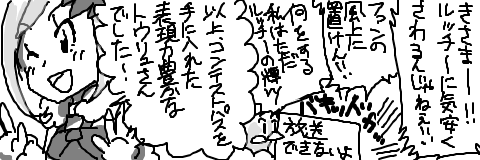 きさまー!!
ルッチ〜に気安く
さわるんじゃねぇ!!
ファンの
風上に
置けん!!
何をする
私はただ
ルッチーの輝い
バキッ
放送
できないよ
以上コンテストパスを
手に入れた
表現力豊かな
トウリョさん
でした〜